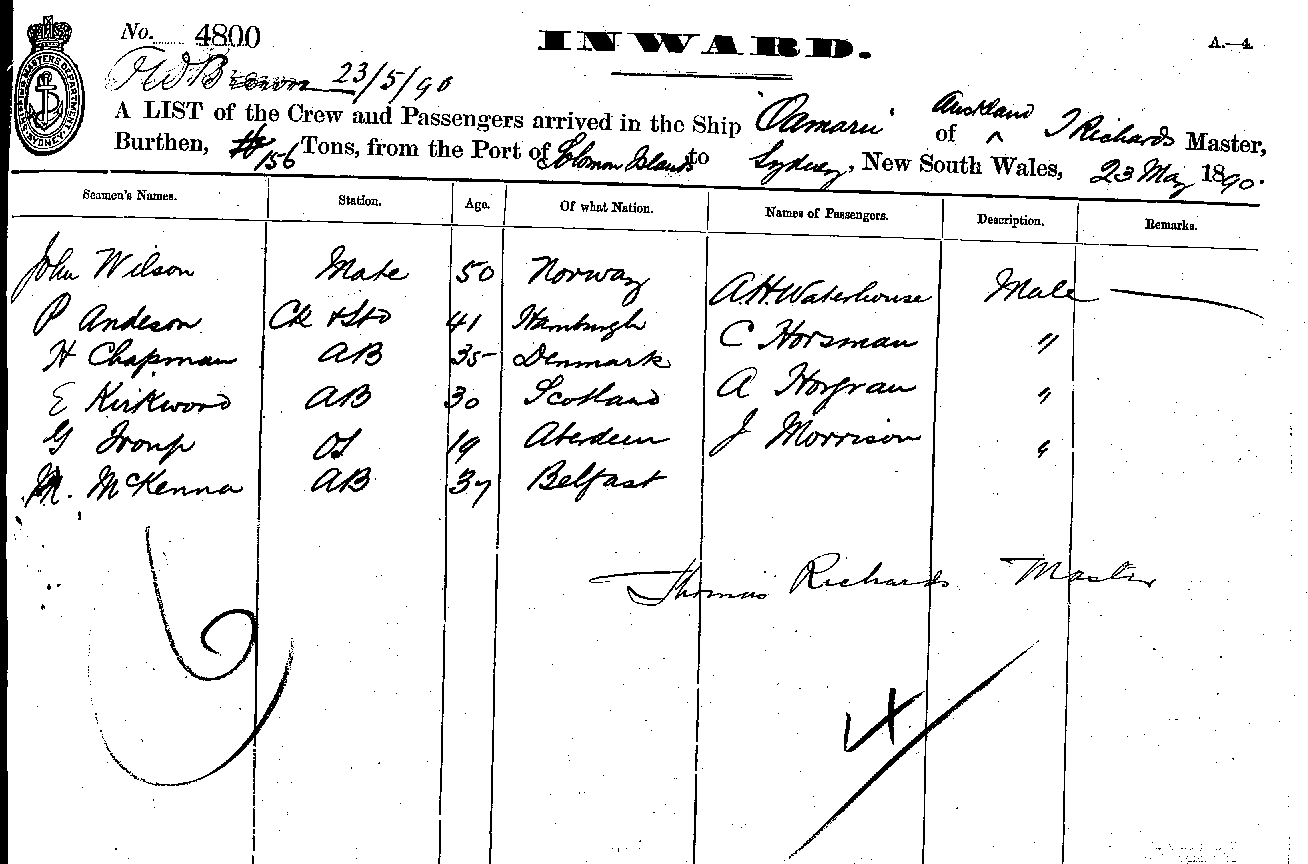 No. 4800
INWARD.
A.—4.
23/5/90
A LIST of the Crew and Passengers arrived in the Ship "Oamaru" of Auckland T Richards Master,
Burthen, 156 Tons, from the Port of Solomon Islands to Sydney, New South Wales, 23 May 1890.
Seamen's Names. Station. Age. Of what Nation. Names of Passengers. Description. Remarks.
John Wilson Mate 50 Norway A H Waterhouse Male
P Andeson Ck & Std 41 Hamburgh C Horsman "
H Chapman AB 35 Denmark A "
E Kirkwood AB 30 Scotland J Morrison "
G Troup OS 19 Aberdeen
M. McKenna AB 37 Belfast
Thomas Richards Master
6
4